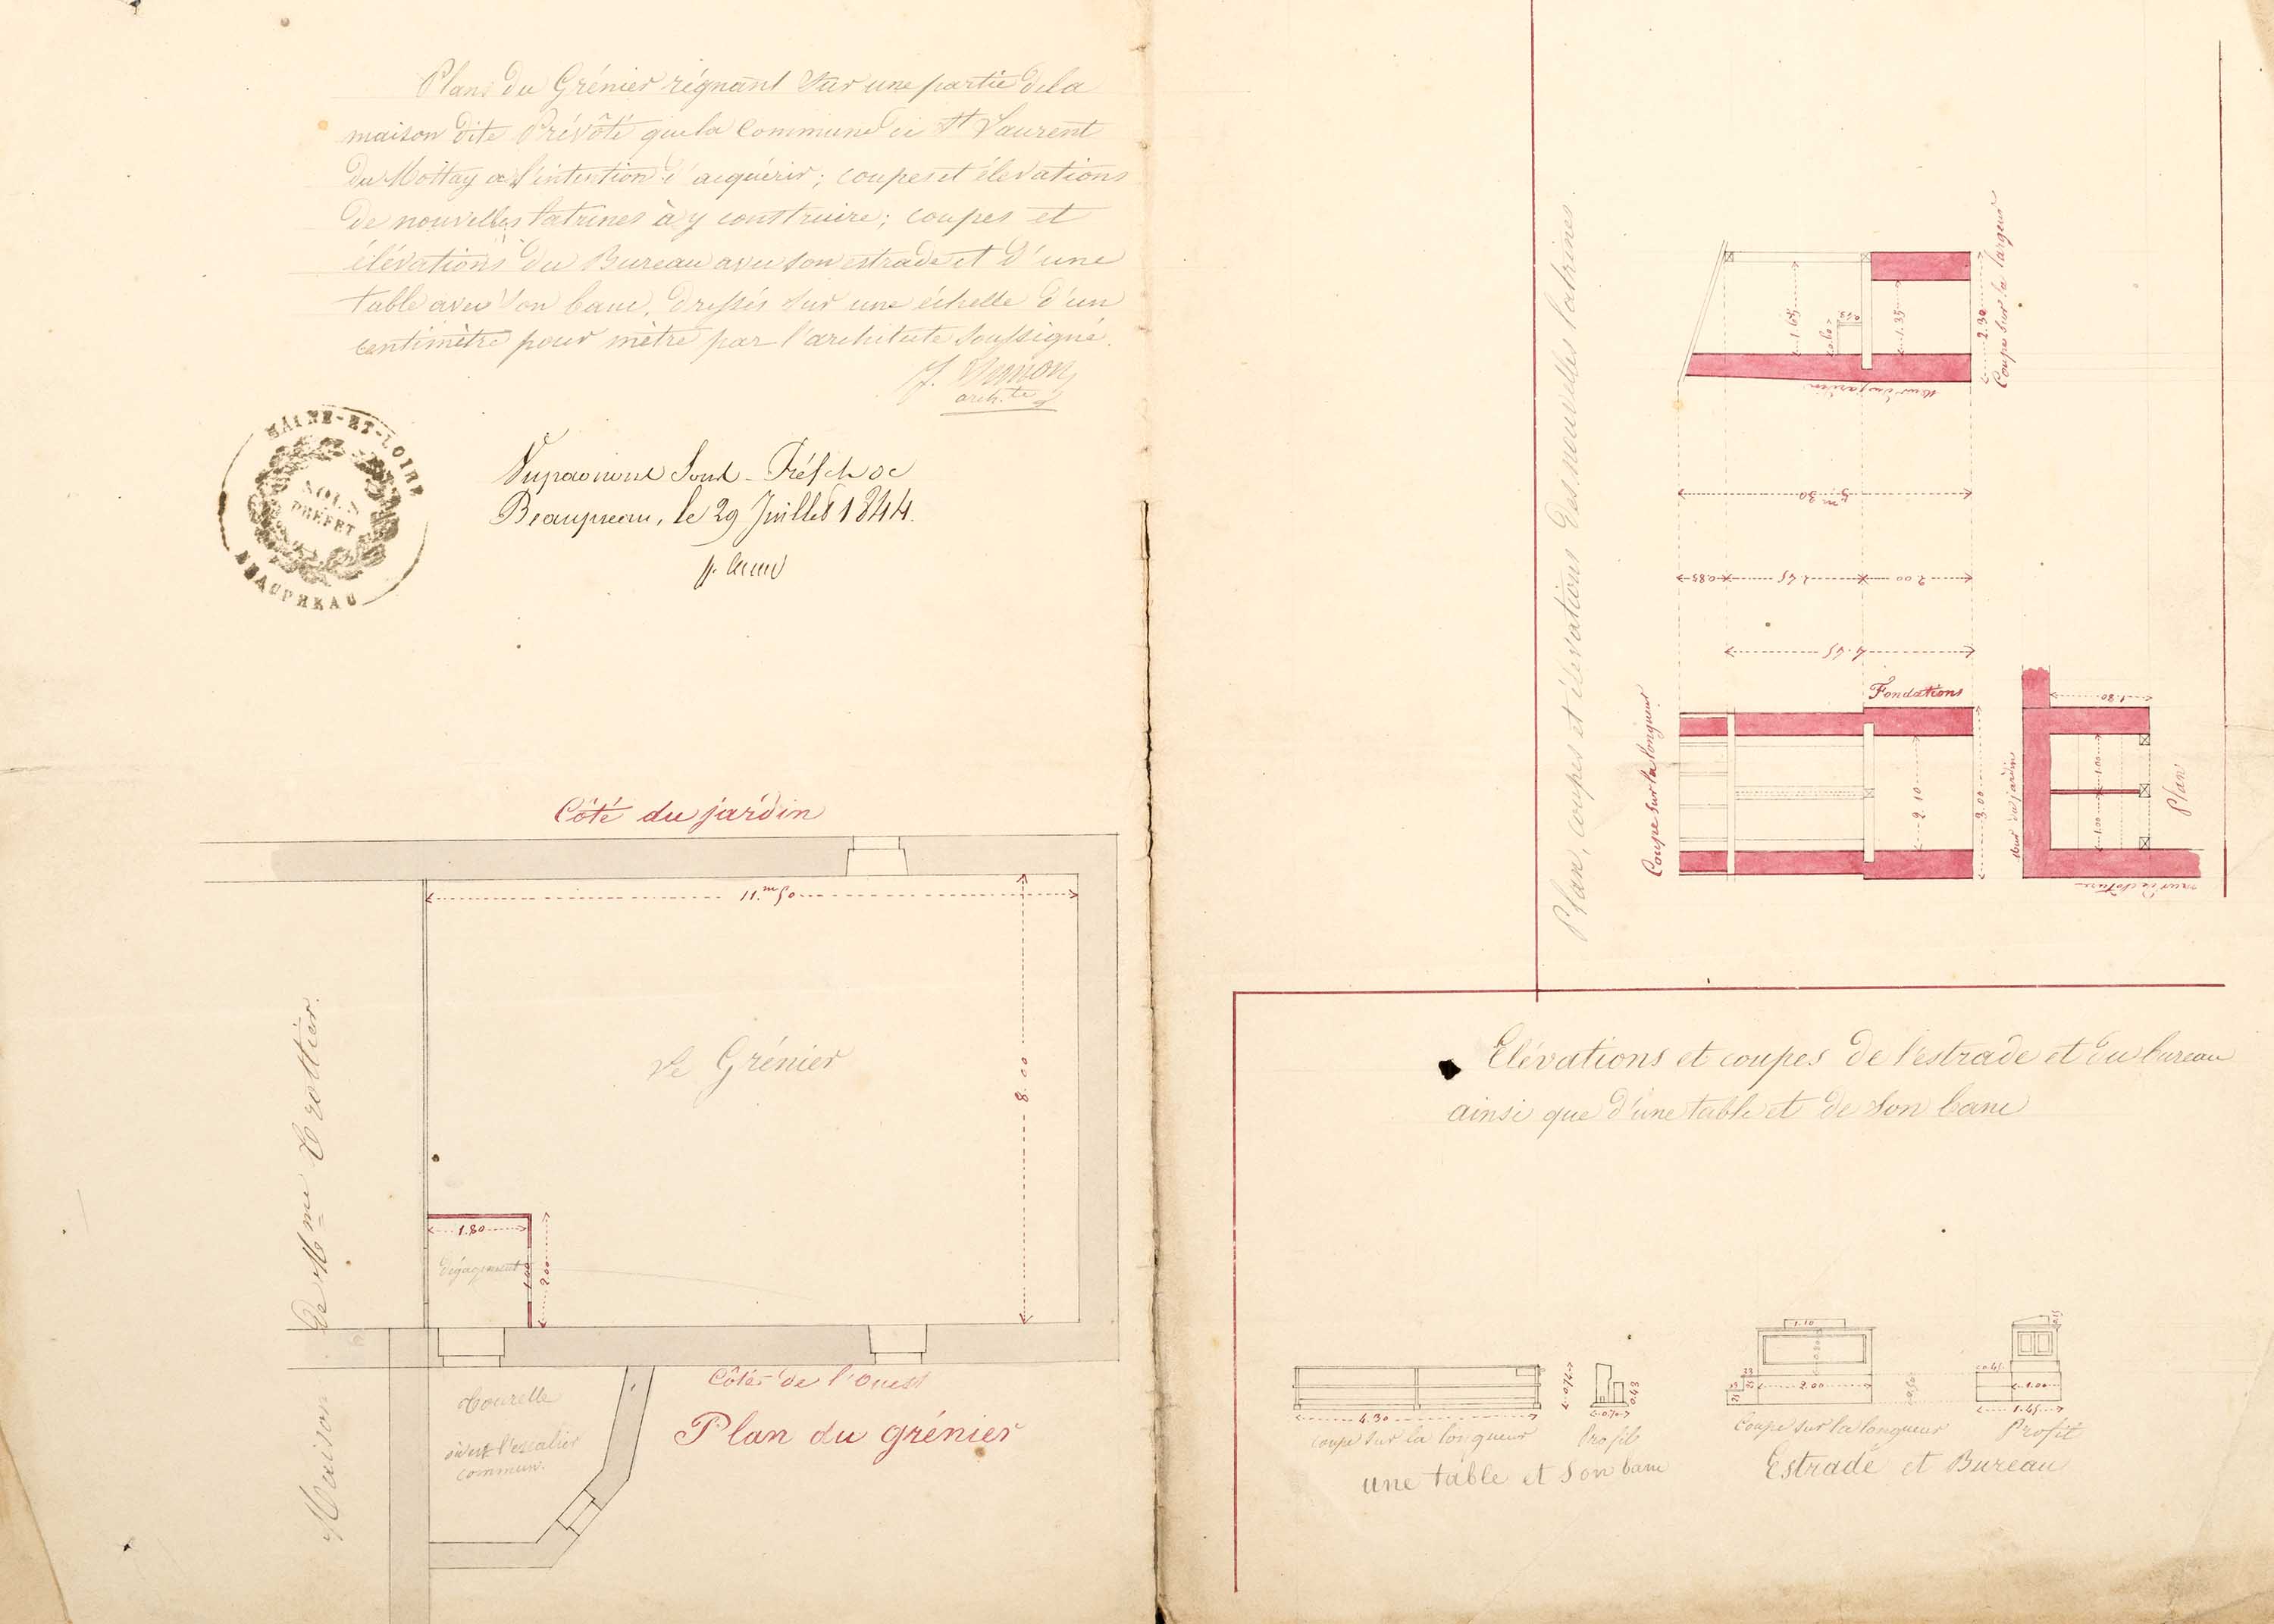 Plans du Grénier régnant sur une partie de la
maison dite Prévôté que la Commune de St Laurent
du Mottay a l'intention d'acquérir; coupes et élévations
de nouvelles latrines à y construire; coupes et
élévations du Bureau avec son estrade et d'une
table avec son banc, dressés sur une échelle d'un
centimètre pour mètre par l'architecte soussigné.
archte
MAINE-ET-LOIRE
SOUS
PRÉFET
BEAUPREAU
Sous-Préfet de
Beaupreau, le 29 Juillet 1844.
Côté du jardin
11.m50
8.00
Le Grénier
Maison de Mme Trottier.
1.80
dégagement
2.00
Côté de l'Ouest
Plan du grénier
Tourelle
où est l'escalier
commun.
Plan, coupes et élévations des nouvelles latrines.
1.65
0.60
1.35
2.30
Coupe sur la largeur
mur du jardin
5m30
0.85
2.45
2.00
4.45
Fondations
Coupe sur la longueur
2.10
3.00
1.80
1.00
1.00
mur du jardin
Plan
mur de cloture
Elévations et coupes de l'estrade et du bureau
ainsi que d'une table et de son banc
4.30
0.43
coupe sur la longueur
Profil
une table et son banc
1.10
2.00
Coupe sur la longueur
1.00
1.45
Profil
Estrade et Bureau